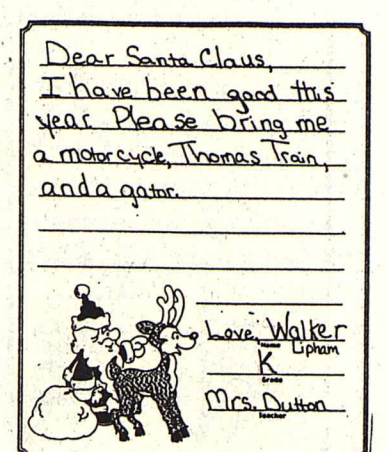 Dear Santa Claus,
I have been good this
year. Please bring me
a motorcycle, Thomas Train,
and a gator.
Love, Walker
Name
Lipham
K
Grade
Mrs. Dutton
Teacher